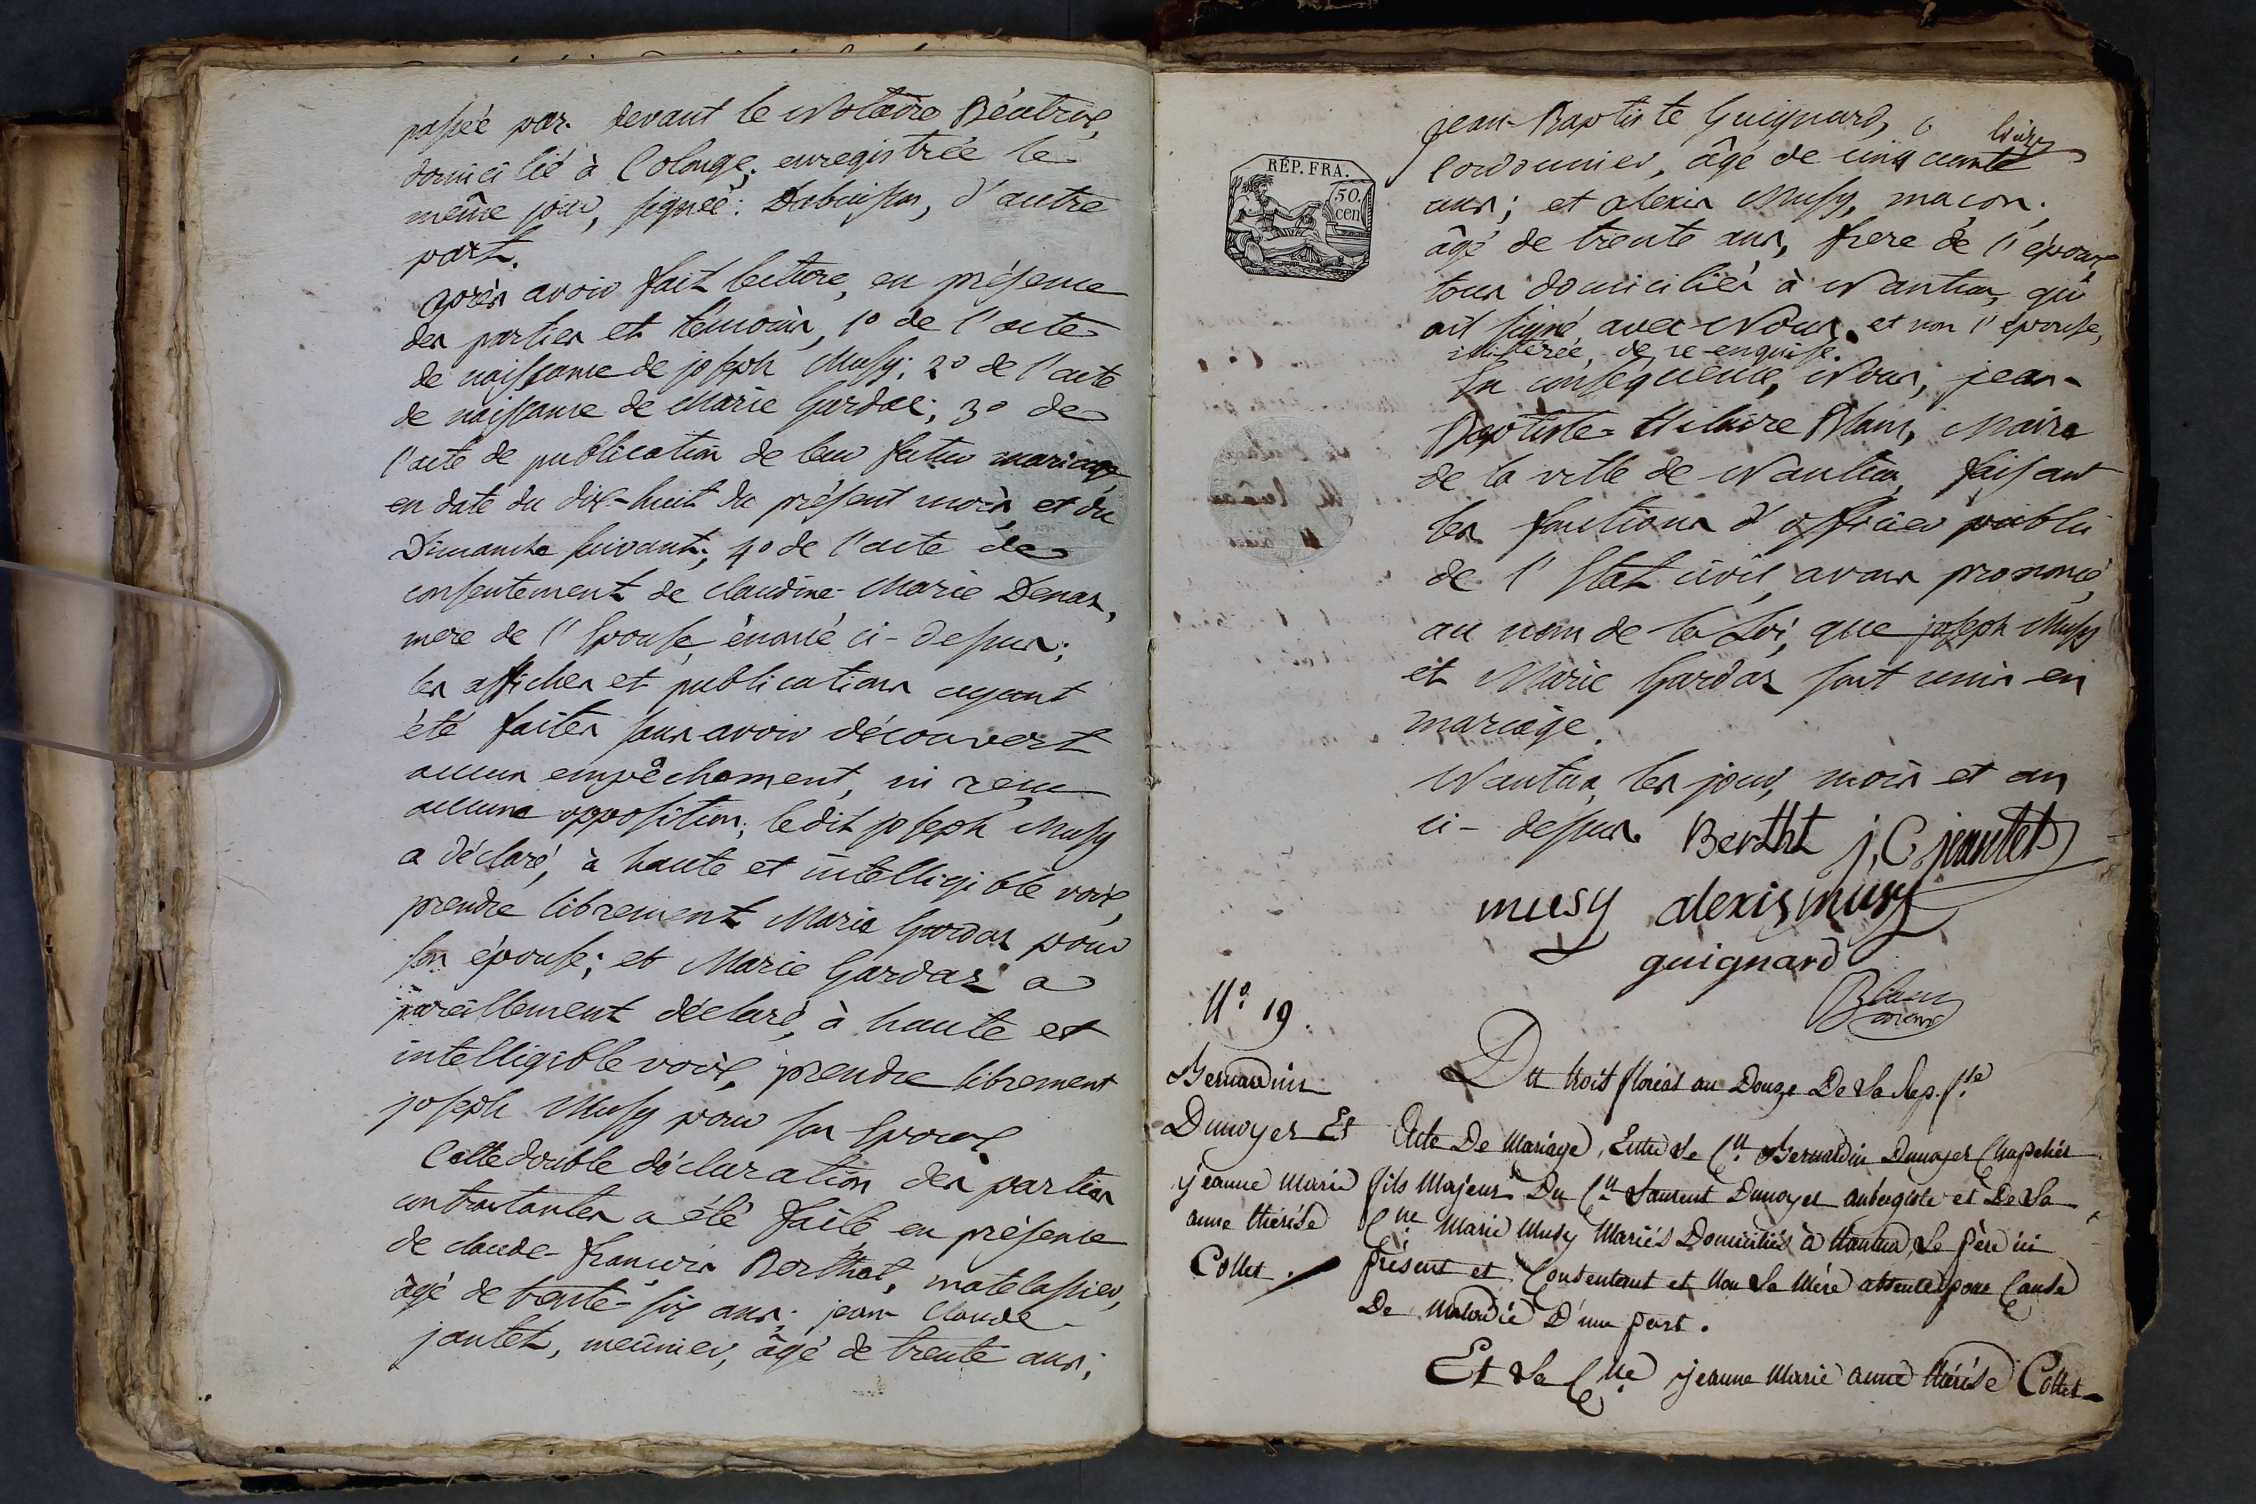 passée par devant le Notaire Béatrix,
domicilié à Colonge; enregistrée le
même jour, signée: Dubuisson, d'autre
part.
après avoir fait lecture, en présence
des parties et témoins, 1º de l'acte
de naissance de joseph Musy; 2º de l'acte
de naissance de Marie Gardaz; 3º de
l'acte de publication de leur futur mariage
en date du dix-huit du présent mois, et du
Dimanche suivant; 4º de l'acte de
consentement de claudine-Marie Denar,
mere de l'Epouse, énoncé ci-dessus;
les affiches et publications ayant
été faites sans avoir découvert
aucun empêchement, ni reçu
aucune opposition; ledit joseph Musy
a déclaré, à haute et intelligible voix,
prendre librement Marie Gardaz pour
son épouse; et Marie Gardaz a
pareillement déclaré, à haute et
intelligible voix, prendre librement
joseph Musy pour son Epoux
Cette double déclaration des parties
contractantes a été faite en présence
de claude-françois Berthet, matelassier,
âgé de trente-six ans; jean Claude
jantet, meûnier, âgé de trente ans;
RÉP. FRA.
50.
cen
jean-Baptiste Guignard,
Cordonnier, âgé de cinquante
ans; et alexis Musy, maçon,
âgé de trente ans, frere de l'époux,
tous domiciliés à Nantua, qui
ont signé avec Nous. et non l'epouse,
illitérée, de ce enquise.
En conséquence, Nous, jean-
Baptiste-Hilaire Blanc, Maire
de la ville de Nantua, faisant
les fonctions d'officier public
de l'Etat civil, avons prononcé,
au nom de la Loi, que joseph Musy
et Marie Gardaz sont unis en
mariage.
Nantua, les jour, mois et an
ci-dessus. Bertht j, C jeantet
musy alexis musy
guignard
Blanc
maire
Nº 19.
Bernardin
Dunoyer Et
jeanne Marie
anne thérése
Collet.
Du trois floréal an Douze De La Rep. fse
Acte De Mariage, Entre Le Cn Bernardin Dunoyer Chapelier
fils Majeur Du Cn Laurent Dunoyer aubergiste et De La
Cne Marie Musy Mariés Domiciliés à Nantua, Le père ici
présent et Consentant et Non La Mère absente pour Cause
De Maladie D'une part.
Et La Cne jeanne Marie anne thérése Collet